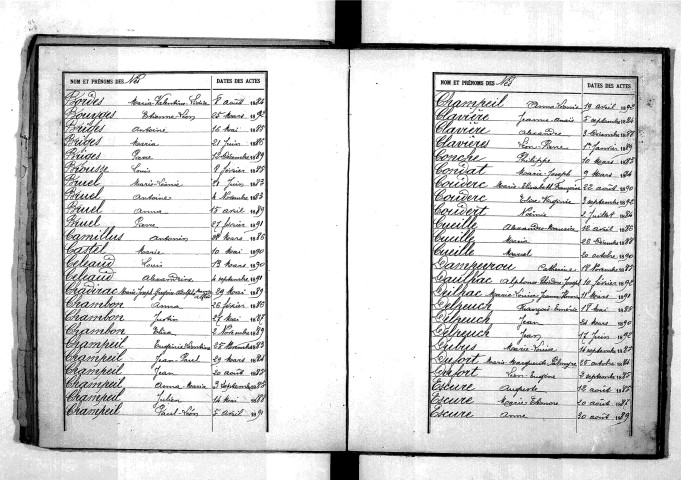 NOM ET PRÉNOMS DES Nés DATES DES ACTES
Bordes Marie Valentine 8 août 1884
Bouyges Etienne Léon 25 mars 1892
Briges Antoine 16 mai 1885
Briges Maria 21 juin 1886
Briges Pierre 1889
Brousse Louis 2 février 1885
Bruel Marie Léonie 21 juin 1883
Bruel Antoine 4 Novembre 1883
Bruel Anna 15 avril 1889
Bruel Pierre 27 février 1891
Camillus Antonin mars 1885
Castel Marie 10 mai 1890
Celeaud Louis 13 mars 1890
Celeaud Alexandrine 4 septembre 1891
Chadirac Marie Joseph 29 mai 1889
Chambon Anna 26 février 1886
Chambon Justin 27 mai 1887
Chambon Elisa 2 Novembre 1889
Champeil Eugénie 25 Novembre 1883
Champeil Jean Paul 29 mars 1884
Champeil Jean 20 août 1885
Champeil Anna Maria 3 septembre 1885
Champeil Julien 14 mai 1888
Champeil Paul Léon 5 avril 1891
NOM ET PRÉNOMS DES Nés DATES DES ACTES
Champeil Anna Léonie 19 avril 1892
Clavière Jeanne Anaïs 5 septembre 1884
Clavière Alexandre 3 Décembre 1888
Clavières Léon Pierre 1er Janvier 1889
Conche Philippe 10 mars 1885
Condat Marie Joseph 9 mars 1884
Couderc Marie Elisabeth Françoise 22 août 1890
Couderc Elise Virginie 3 septembre 1892
Coudert Léonie 2 juillet 1884
Cueille Alexandre 16 août 1886
Cueille Maria 22 Décembre 1888
Cueille Marcel 20 octobre 1890
Dampeyrou Catherine 19 Novembre 1887
Daulhac Alphonse Joseph 10 février 1892
Marie Louise Jeanne 11 mars 1891
Delpeuch François 18 mai 1885
Delpeuch Jean 24 mars 1890
Delpeuch Jean 17 juin 1892
Marie Louise 14 septembre 1887
Dufort Marie Marguerite 25 octobre 1884
Dufort Léon Eugène 3 septembre 1885
Escure Auguste 12 août 1885
Escure Marie Eléonore 20 août 1885
Escure Anne 30 août 1889